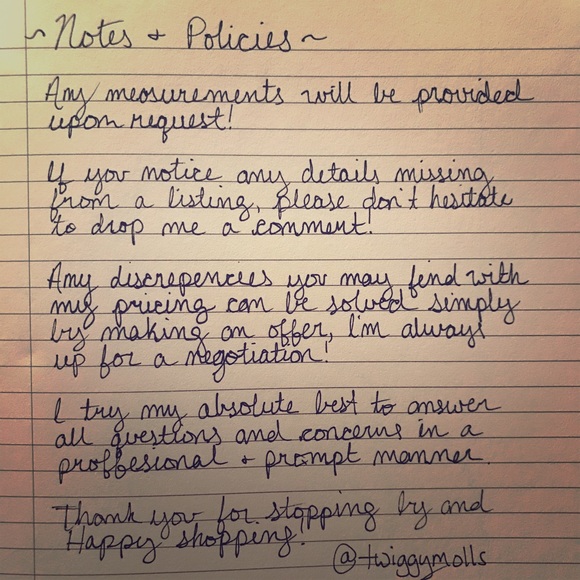 ~Notes + Policies~
Any measurements will be provided
upon request!
If you notice any details missing
from a listing, please don't hesitate
to drop me a comment!
Any discrepencies you may find with
my pricing can be solved simply
by making an offer, I'm always
up for a negotiation!
I try my absolute best to answer
all questions and concerns in a
proffesional + prompt manner.
Thank you for stopping by and
Happy shopping!
@twiggymolls